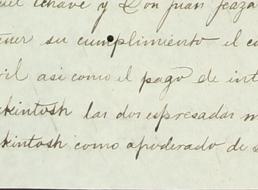 Chave y Don Juan
ner su cumplimiento el co
il asi como el pago de int
ckintosh las dos espresadas m
kintosh como apoderado de